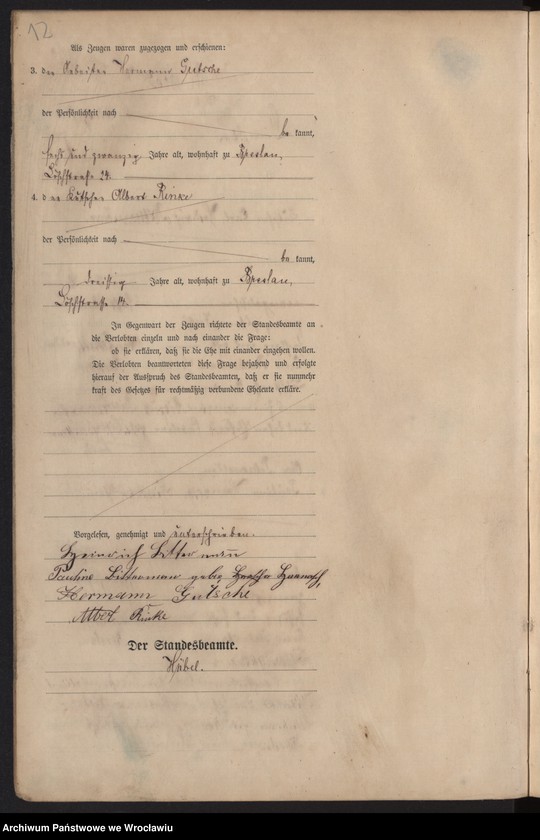 12
Als Zeugen waren zugezogen und erschienen:
3. der Arbeiter Hermann Gutsche
der Persönlichkeit nach
be kannt,
sechs und zwanzig Jahre alt, wohnhaft zu Breslau,
Löschstraße 24.
4. der Kutscher Albert Rinke
der Persönlichkeit nach
be kannt,
dreißig Jahre alt, wohnhaft zu Breslau,
Löschstraße 14.
In Gegenwart der Zeugen richtete der Standesbeamte an
die Verlobten einzeln und nach einander die Frage:
ob sie erklären, daß sie die Ehe mit einander eingehen wollen.
Die Verlobten beantworteten diese Frage bejahend und erfolgte
hierauf der Ausspruch des Standesbeamten, daß er sie nunmehr
kraft des Gesetzes für rechtmäßig verbundene Eheleute erkläre.
Vorgelesen, genehmigt und unterschrieben.
Heinrich
Pauline geb.
Hermann Gutsche
Albert Rinke
Der Standesbeamte.
Hübel.
Archiwum Państwowe we Wrocławiu